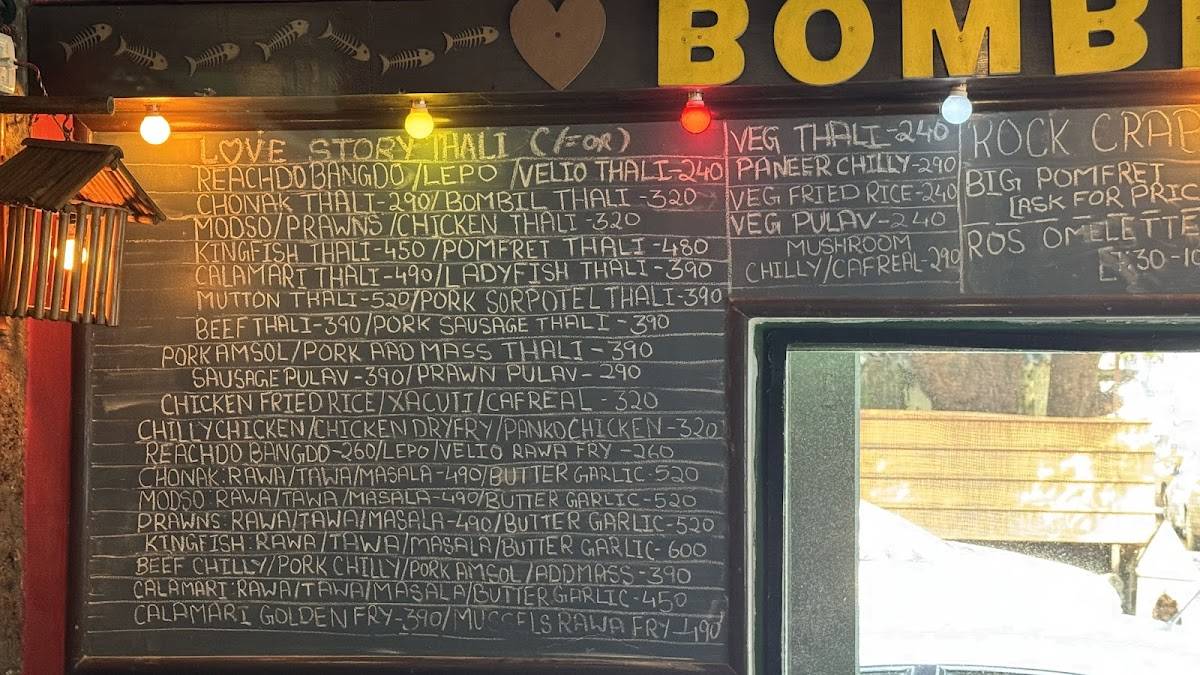 BOMB
LOVE STORY THALI (/=OR)
REACHDO BANGDO/LEPO/VELIO THALI-240
CHONAK THALI-290/BOMBIL THALI-320
MODSO/PRAWNS/CHICKEN THALI-320
KINGFISH THALI-450/POMFRET THALI-480
CALAMARI THALI-490/LADYFISH THALI-390
MUTTON THALI-520/PORK SORPOTEL THALI-390
BEEF THALI-390/PORK SAUSAGE THALI-390
PORK AMSOL/PORK AAD MASS THALI-390
SAUSAGE PULAV-390/PRAWN PULAV-290
CHICKEN FRIED RICE/XACUTI/CAFREAL-320
CHILLY CHICKEN/CHICKEN DRY FRY/PANKO CHICKEN-320
REACHDO BANGDO-260/LEPO/VELIO RAWA FRY-260
CHONAK:RAWA/TAWA/MASALA-490/BUTTER GARLIC-520
MODSO RAWA/TAWA/MASALA-490/BUTTER GARLIC-520
PRAWNS:RAWA/TAWA/MASALA-490/BUTTER GARLIC-520
KINGFISH:RAWA/TAWA/MASALA/BUTTER GARLIC-600
BEEF CHILLY/PORK CHILLY/PORK AMSOL/ADDMASS-390
CALAMARI:RAWA/TAWA/MASALA/BUTTER GARLIC-450
CALAMARI GOLDEN FRY-390/RAWA FRY
VEG THALI-240
PANEER CHILLY-290
VEG FRIED RICE-240
VEG PULAV-240
MUSHROOM
CHILLY/CAFREAL-290
ROCK CRAB
BIG POMFRET
[ASK FOR PRIC
ROS OMELETTE